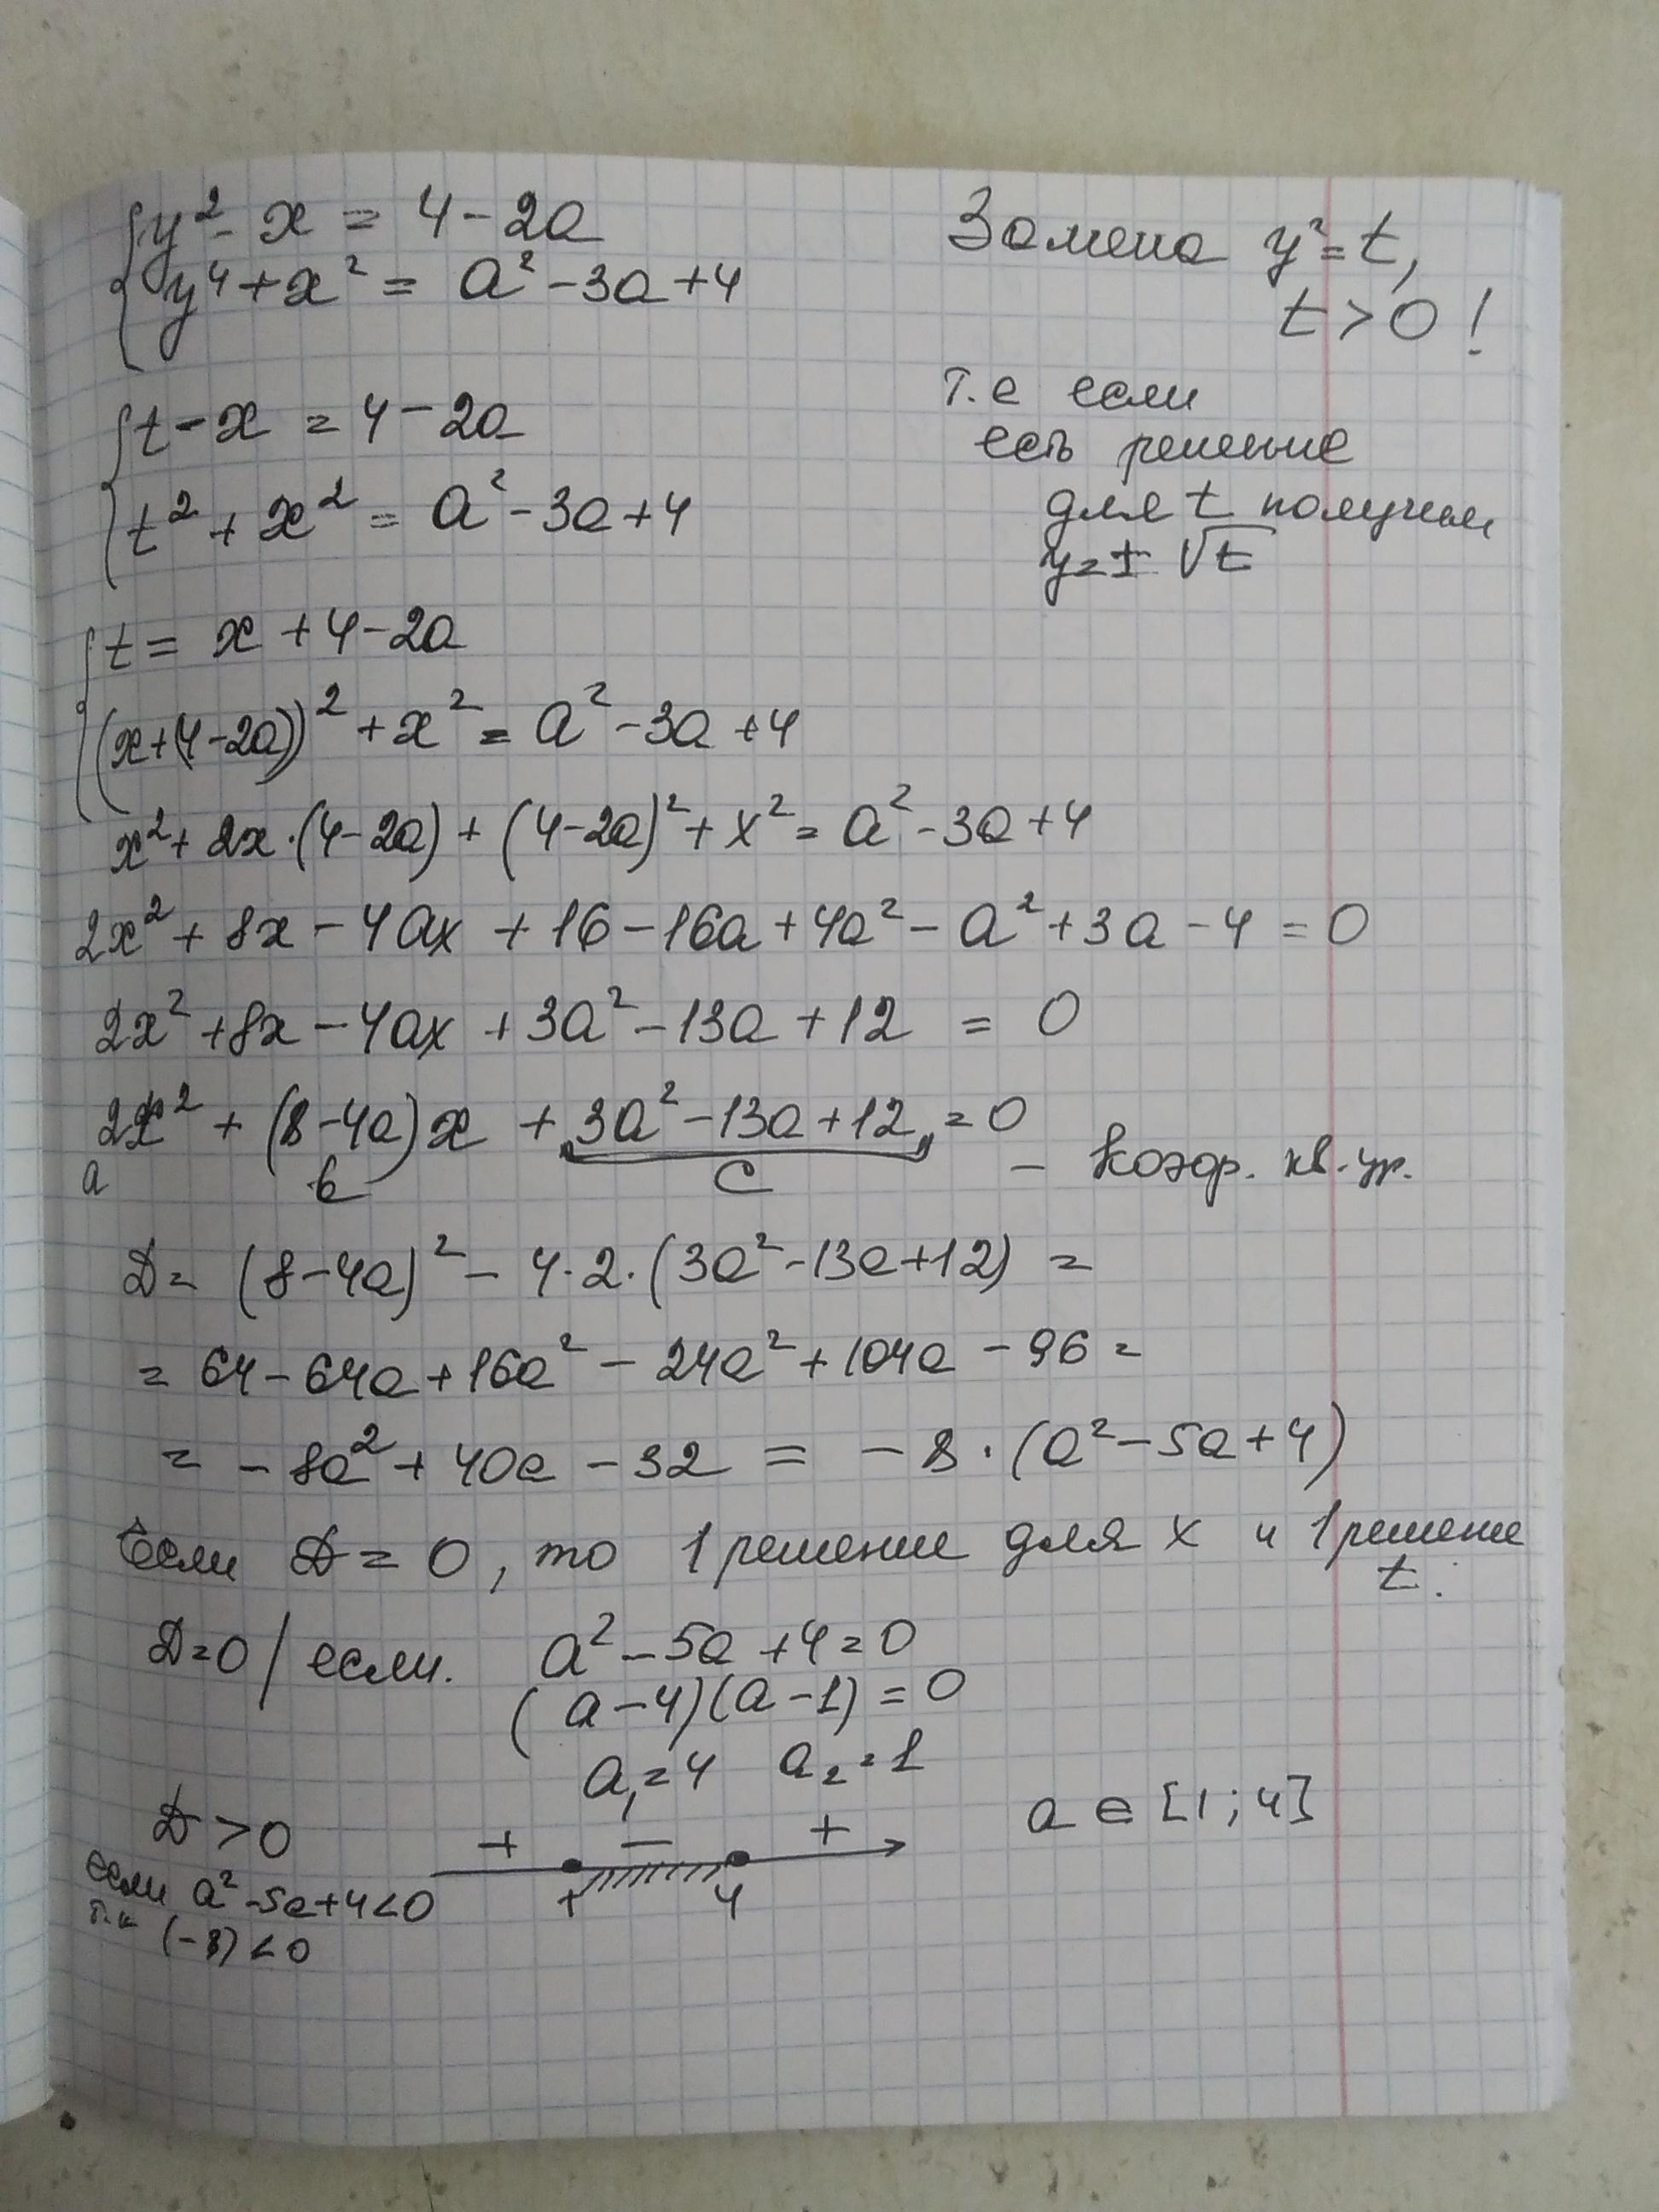 y² - x = 4 - 2a
y⁴ + x² = a² - 3a + 4
Замена y² = t,
t > 0 !
т.е если
есть решение
для t получим
y = ± √t
t - x = 4 - 2a
t² + x² = a² - 3a + 4
t = x + 4 - 2a
(x+(4-2a))² + x² = a² - 3a + 4
x² + 2x·(4-2a) + (4-2a)² + x² = a² - 3a + 4
2x² + 8x - 4ax + 16 - 16a + 4a² - a² + 3a - 4 = 0
2x² + 8x - 4ax + 3a² - 13a + 12 = 0
2x² + (8-4a)x + 3a² - 13a + 12 = 0
a b c - коэф. кв. ур.
D = (8-4a)² - 4·2·(3a² - 13a + 12) =
= 64 - 64a + 16a² - 24a² + 104a - 96 =
= - 8a² + 40a - 32 = - 8·(a² - 5a + 4)
Если D = 0, то 1 решение для x и 1 решение
t.
D=0 / если. a² - 5a + 4 = 0
(a-4)(a-1) = 0
a₁ = 4 a₂ = 1
D > 0
если a² - 5a + 4 < 0
т.к (-8) < 0
+ - +
1 4
a ∈ [1; 4]